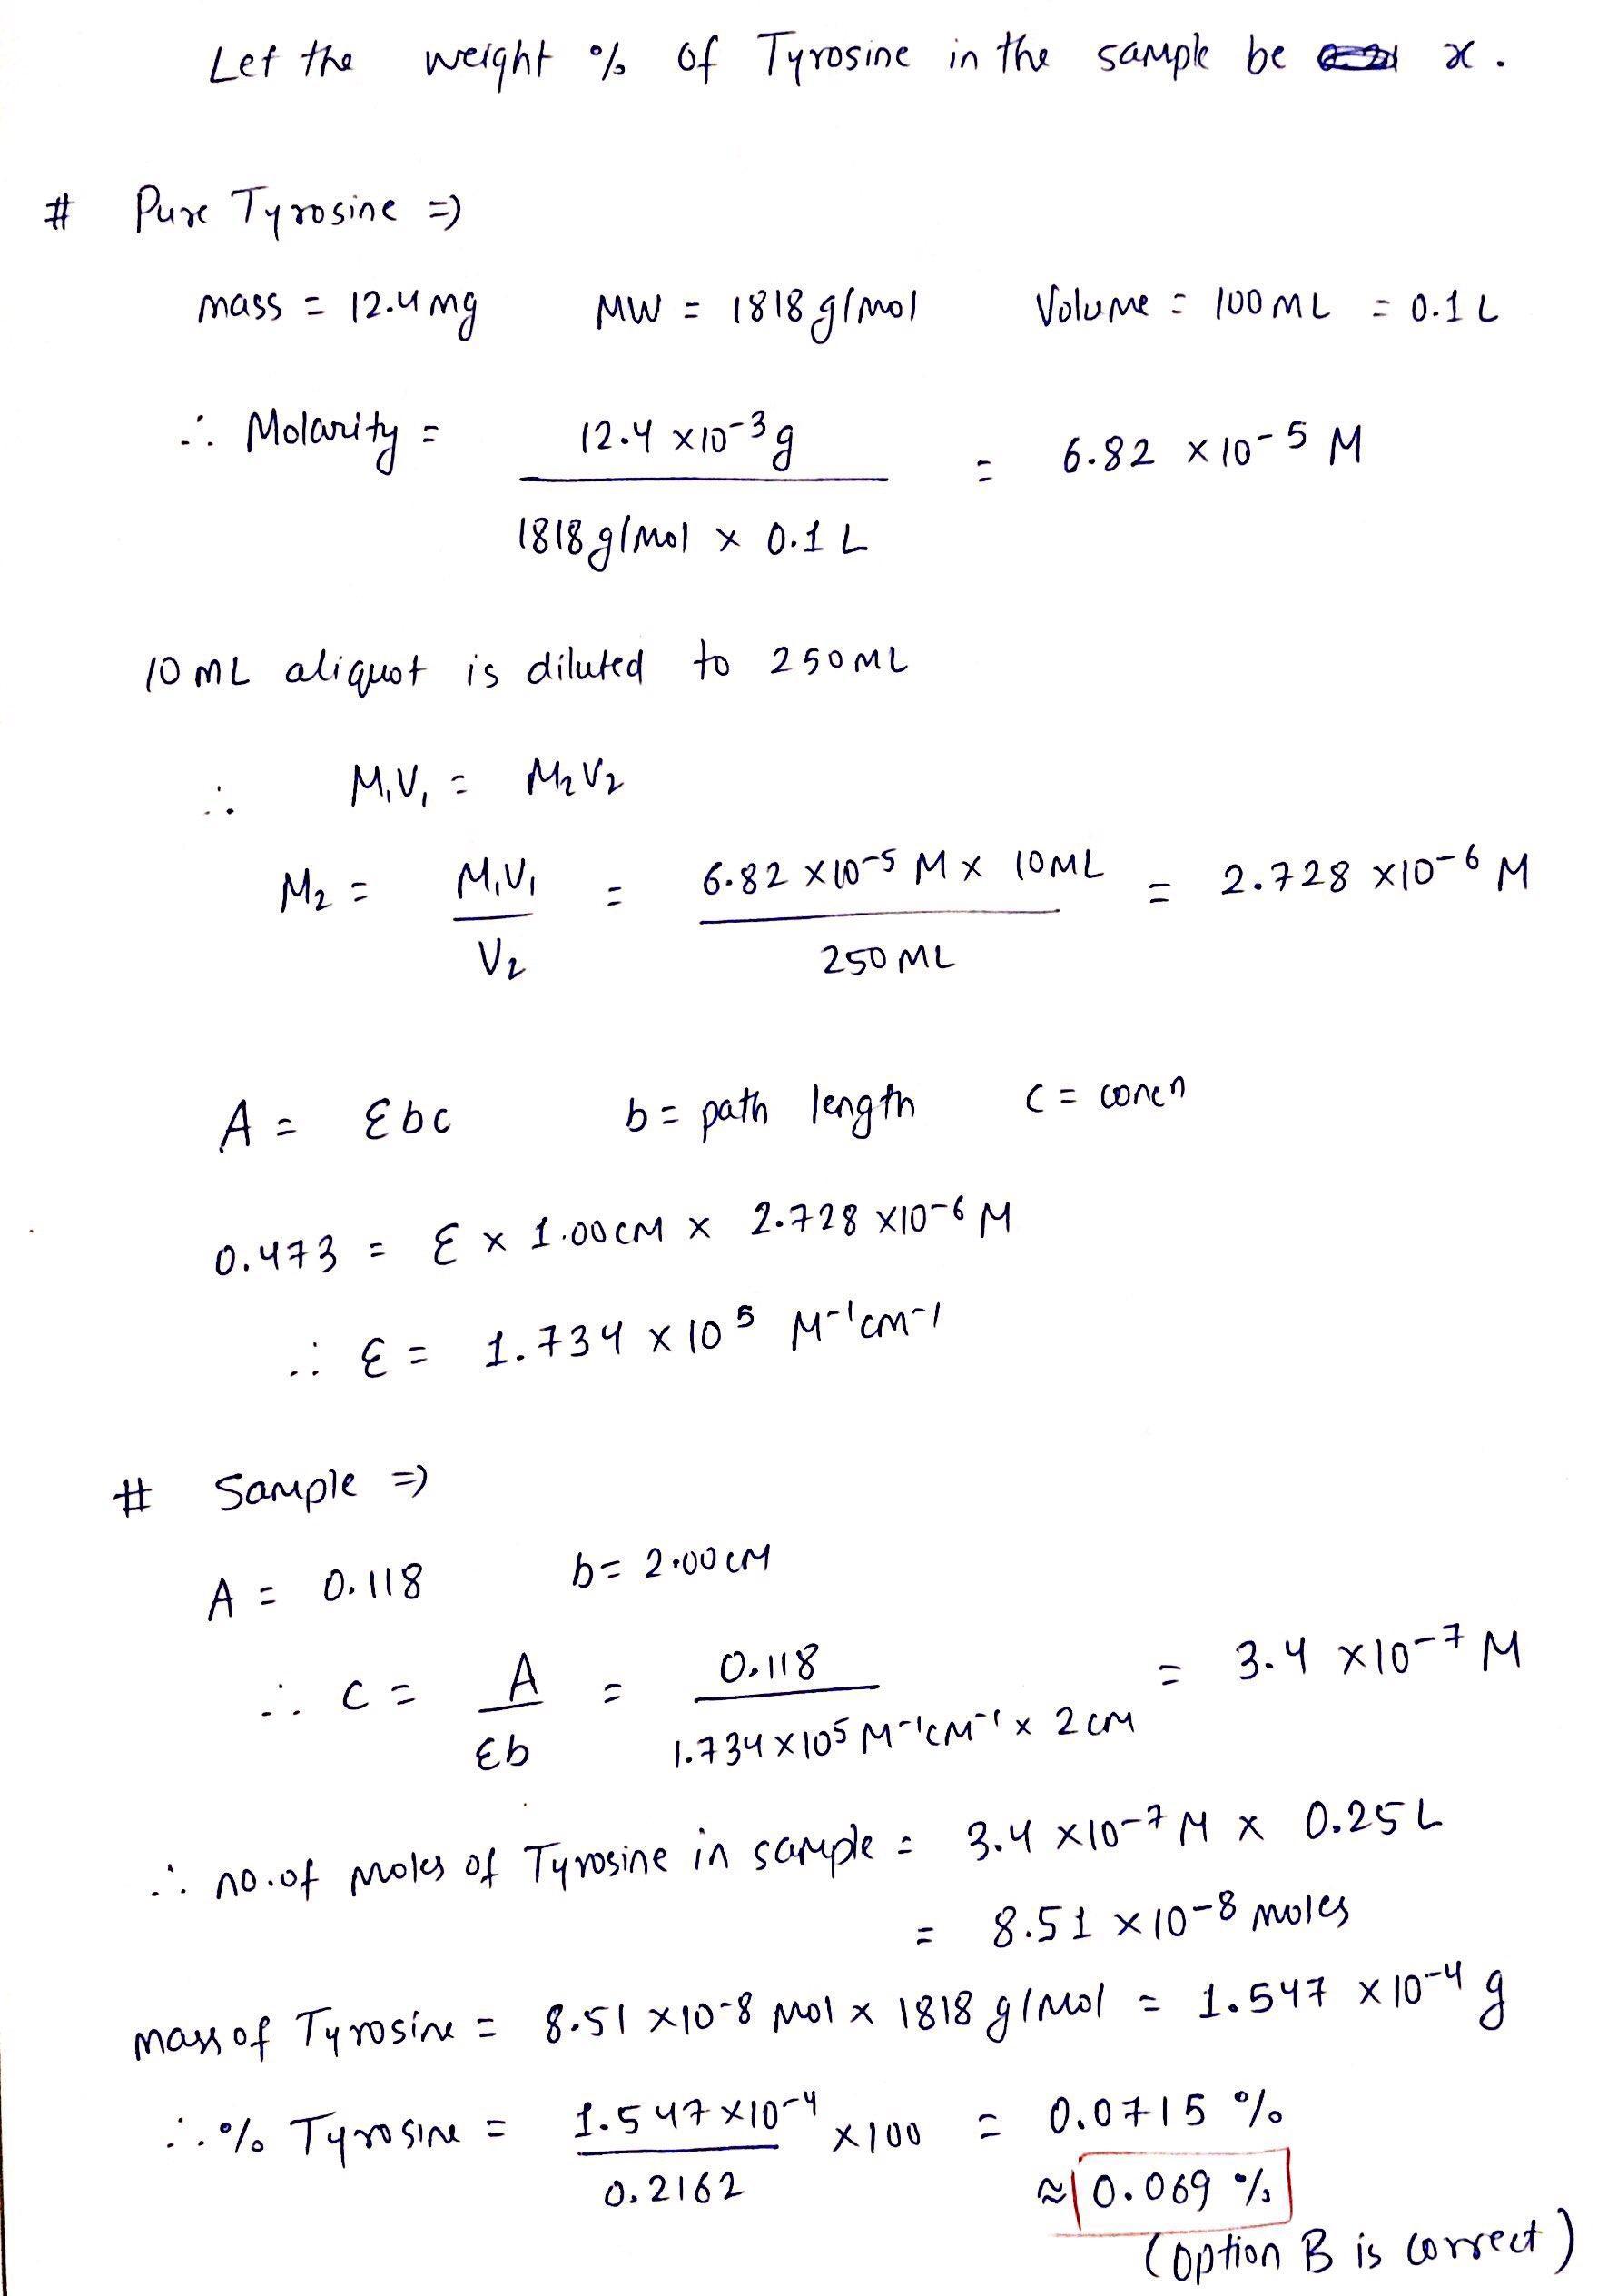 Let the weight % of Tyrosine in the sample be x.
# Pure Tyrosine ⇒
mass = 12.4 mg MW = 1818 g/mol Volume = 100 mL = 0.1 L
∴ Molarity = 12.4 × 10⁻³ g / 1818 g/mol × 0.1 L = 6.82 × 10⁻⁵ M
10 mL aliquot is diluted to 250 mL
∴ M₁V₁ = M₂V₂
M₂ = M₁V₁ / V₂ = 6.82 × 10⁻⁵ M × 10 mL / 250 mL = 2.728 × 10⁻⁶ M
A = Ɛbc b = path length c = concn
0.473 = Ɛ × 1.00 cm × 2.728 × 10⁻⁶ M
∴ Ɛ = 1.734 × 10⁵ M⁻¹cm⁻¹
# Sample ⇒
A = 0.118 b = 2.00 cm
∴ c = A / Ɛb = 0.118 / 1.734 × 10⁵ M⁻¹cm⁻¹ × 2 cm = 3.4 × 10⁻⁷ M
∴ no. of moles of Tyrosine in sample = 3.4 × 10⁻⁷ M × 0.25 L
= 8.51 × 10⁻⁸ moles
mass of Tyrosine = 8.51 × 10⁻⁸ mol × 1818 g/mol = 1.547 × 10⁻⁴ g
∴ % Tyrosine = 1.547 × 10⁻⁴ / 0.2162 × 100 = 0.0715 %
≈ 0.069 %
(option B is correct)